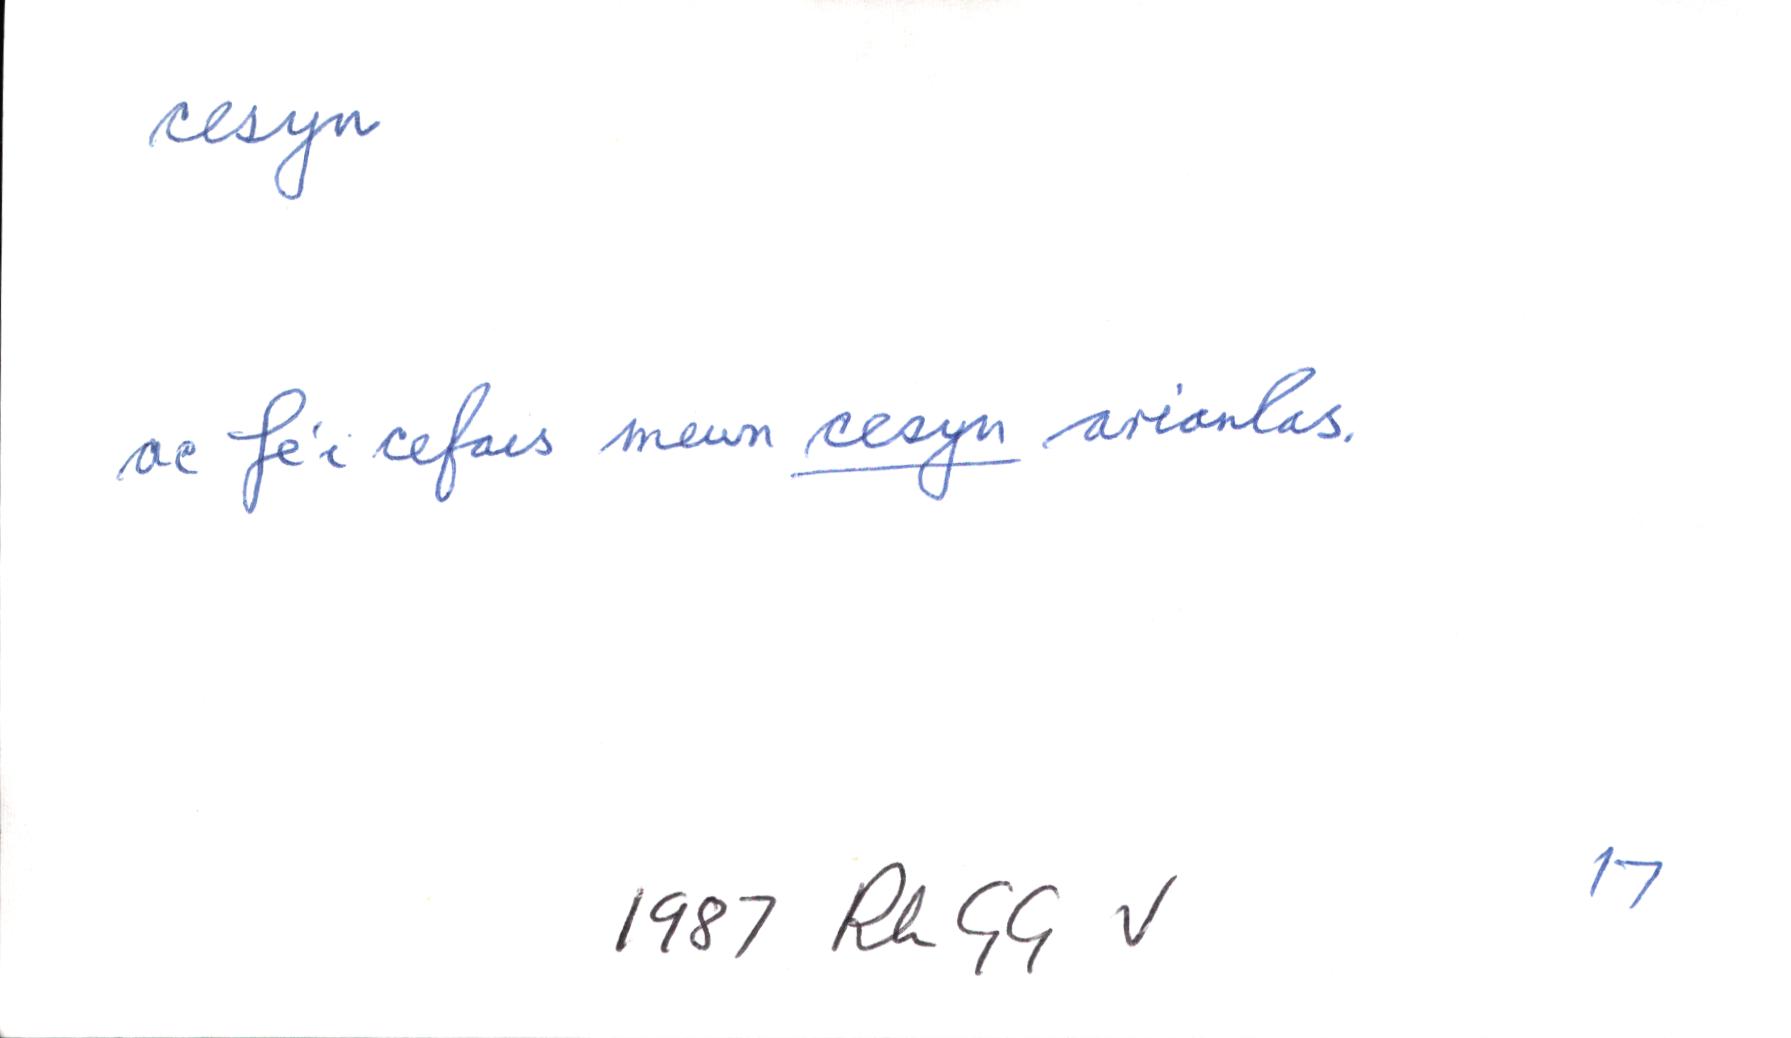 cesyn
ac fe'i cefais mewn cesyn arianlas.
17
1987 Rh GG √